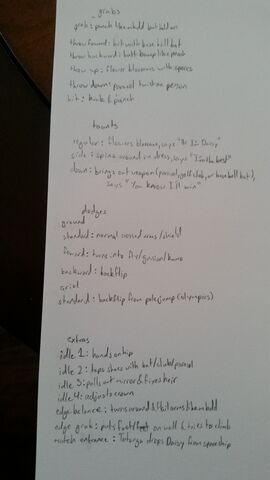 grabs
grab: punch like mbdd but held on
throw forward: hit with base ball bat
throw backward: butt bump like peach
throw up: flower blossoms with spores
throw down: parasol twist on person
hit: hook & punch
taunts
regular: flowers blossom, says "Hi I'm Daisy"
side: spins around in dress, says "I'm the best"
down: brings out weapon (parasol, golf club, or base ball bat),
says "You know I'll win"
dodges
ground
standard: normal crossed arms/shield
foward: turns into fly/
backward: backflip
arial
standard: backflip from pole jump (olympics)
extras
idle 1: hand on hip
idle 2: taps shoes with bat/club/parasol
idle 3: pulls out mirror & fixes hair
idle 4: adjusts crown
edge balance: turns around & flails arms like mbdd
edge grab: puts foot/feet on wall & tries to climb
match entrance: Tatanga drops Daisy from spaceship